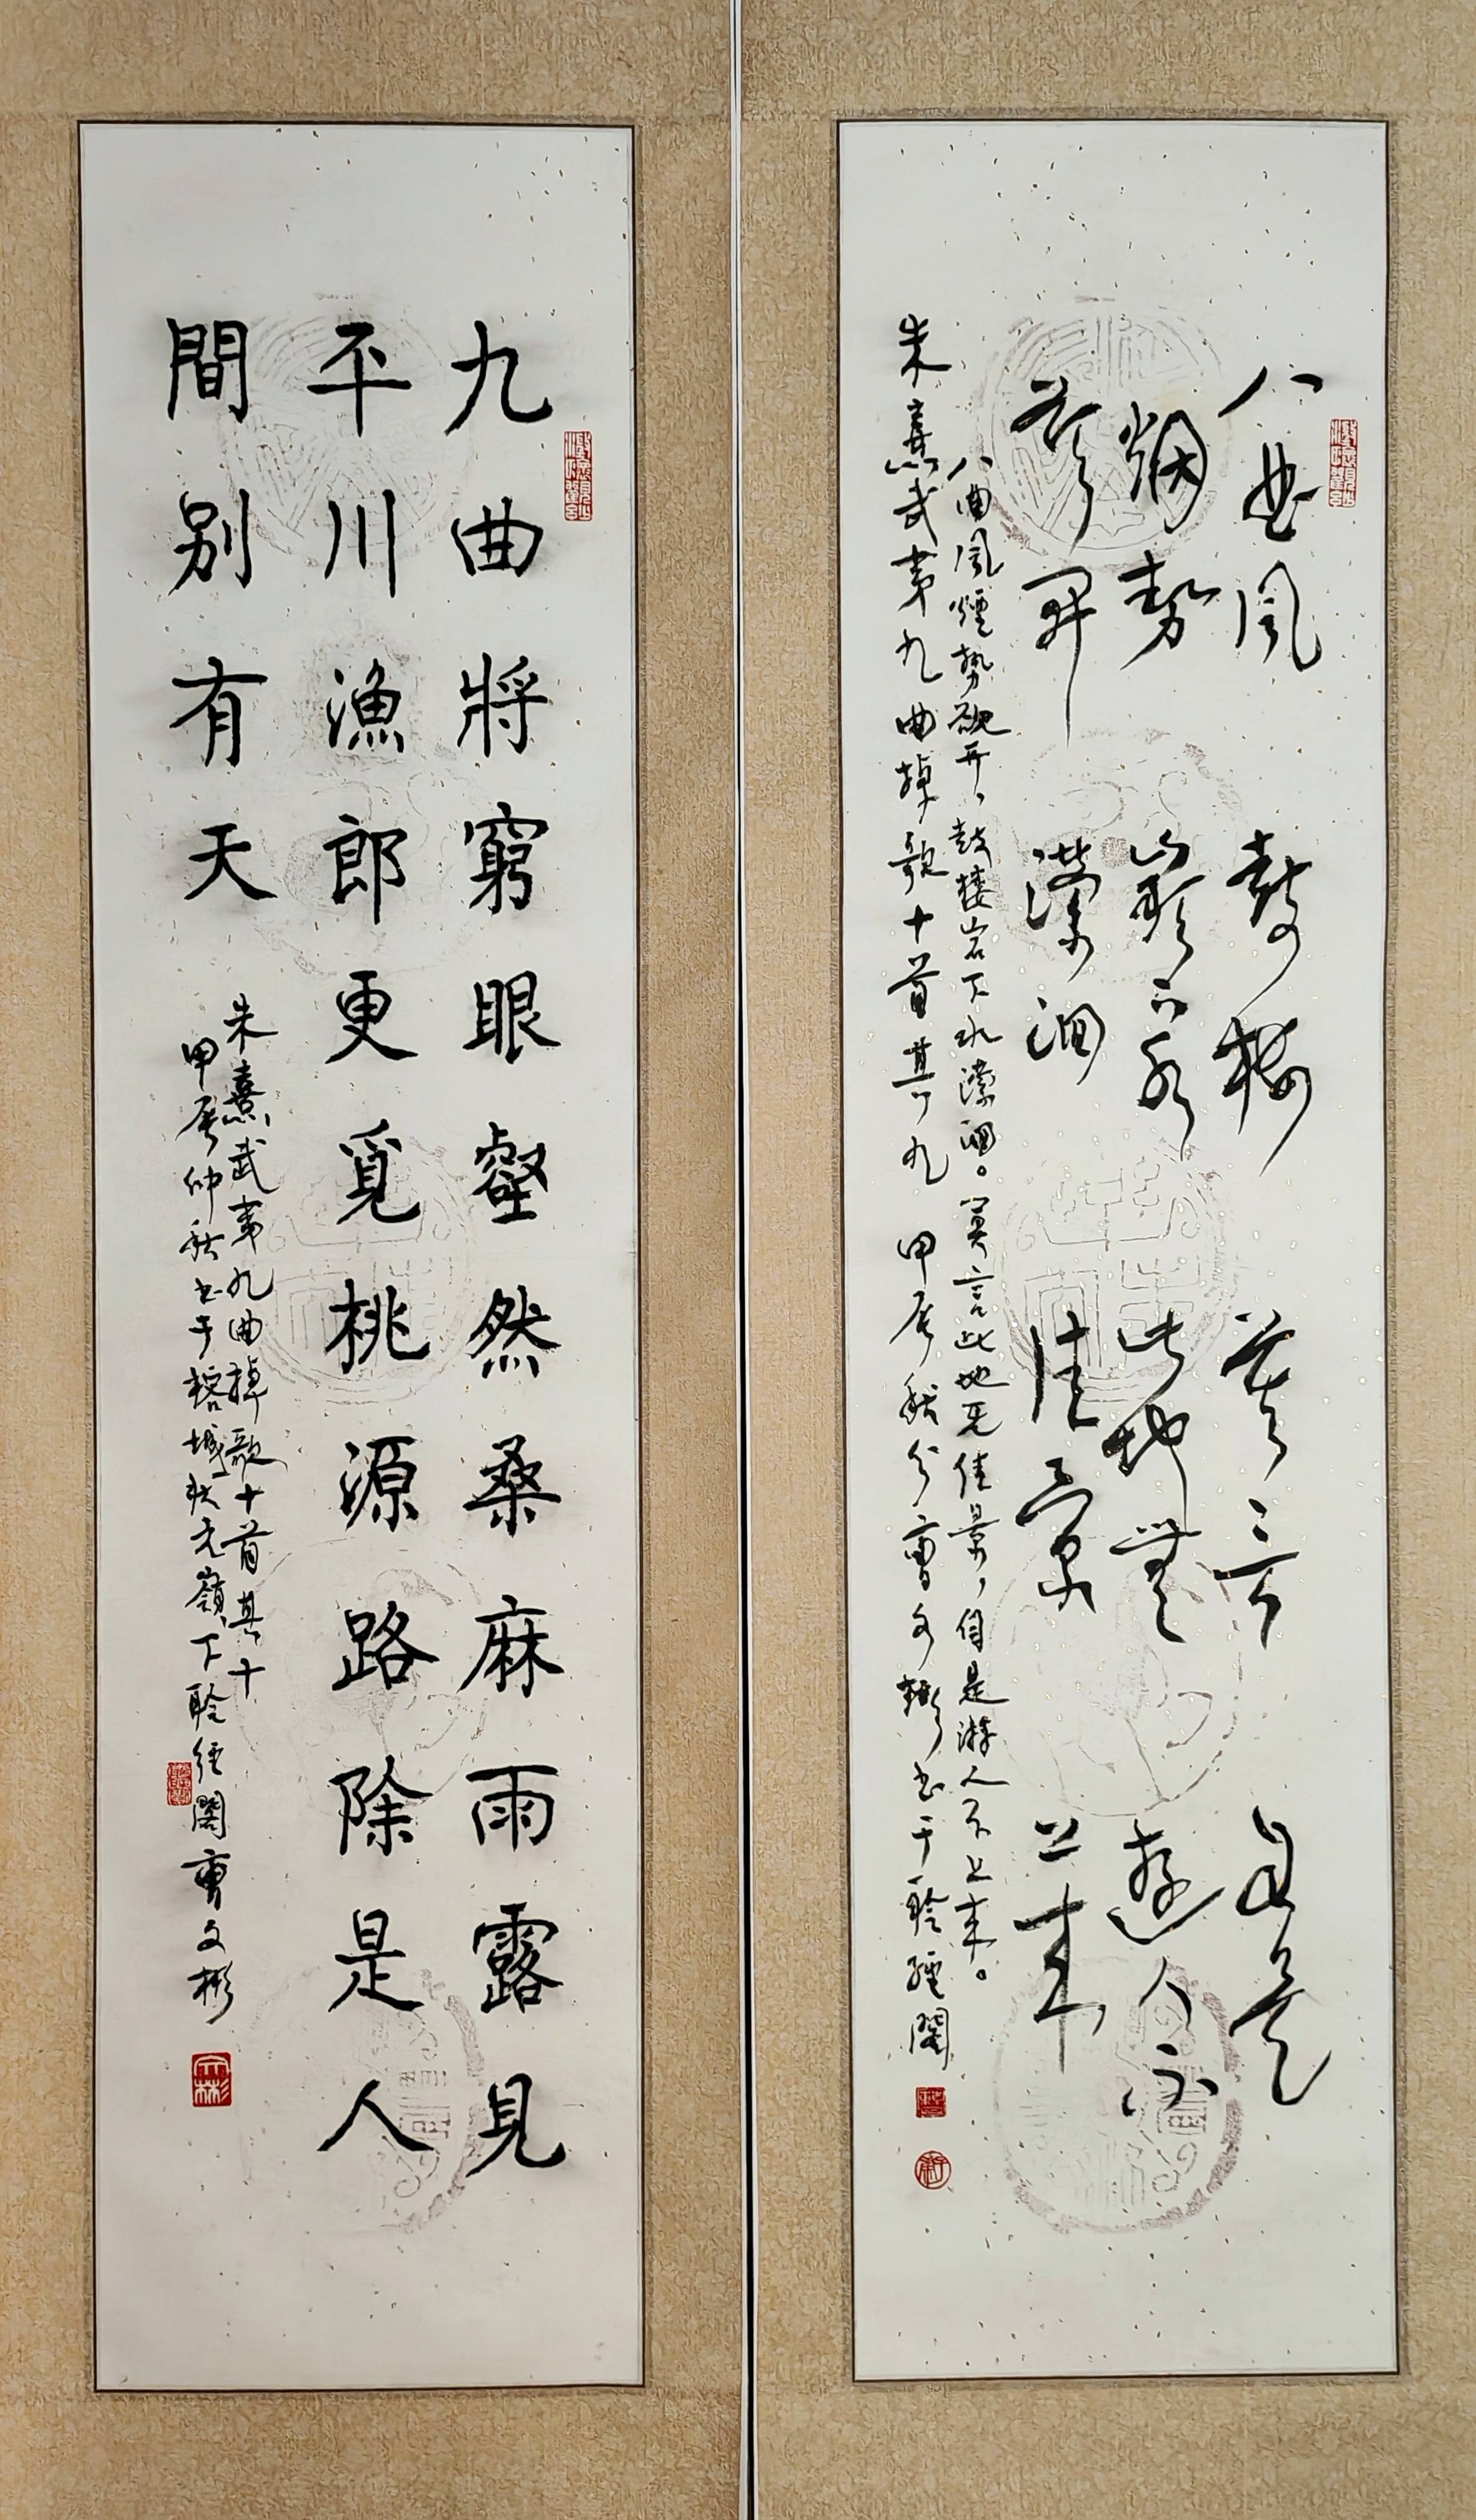 八曲風
烟勢
欲開
鼓樓
巖下水
濚洄
莫言
此地無
佳景
自是
遊人不
上来
八曲風煙勢欲开，鼓楼岩下水濚洄。莫言此地无佳景，自是游人不上来。
朱熹武夷九曲掉歌十首其九 甲辰秋分曹文彬书于聆經閣
九曲將窮眼壑然桑麻雨露見
平川漁郎更覓桃源路除是人
間別有天
朱熹武夷九曲掉歌十首其十
甲辰仲秋书于榕城状元嶺下聆经閣曹文彬